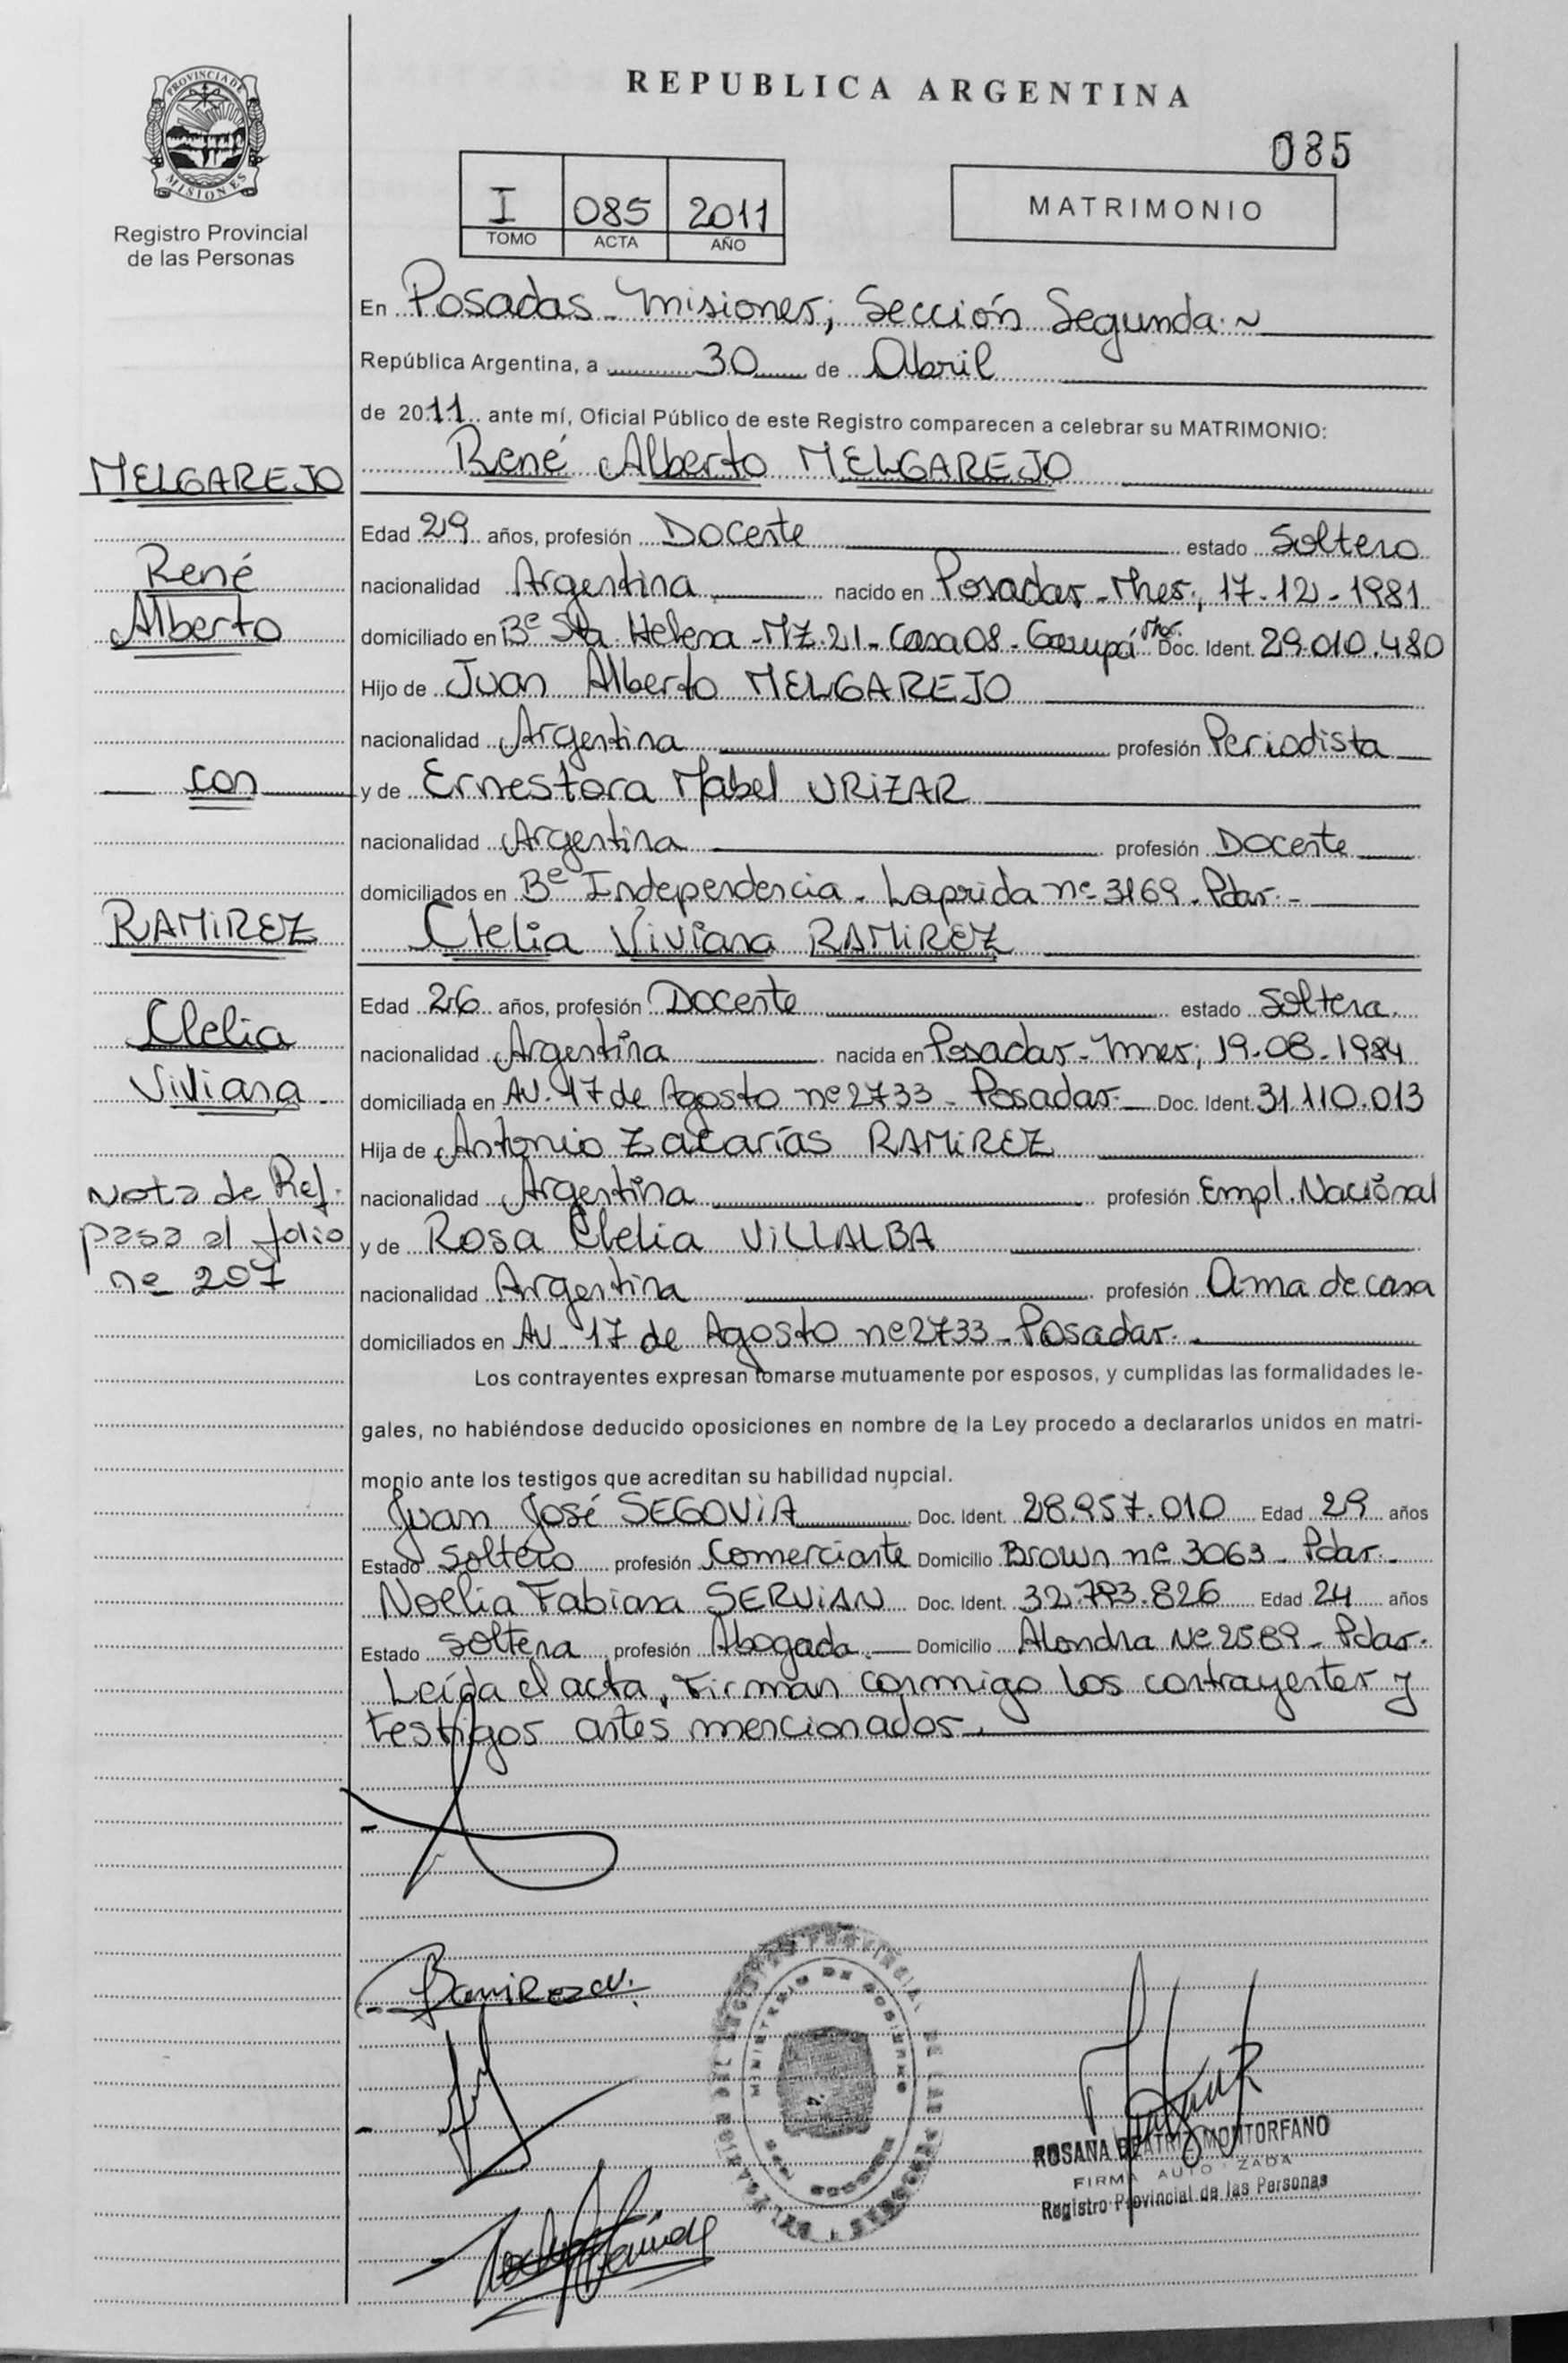 PROVINCIA DE
MISIONES
Registro Provincial
de las Personas
REPUBLICA ARGENTINA
085
I 085 2011
TOMO ACTA AÑO
MATRIMONIO
En Posadas - Misiones; Sección Segunda
República Argentina, a 30 de Abril
de 2011 ante mí, Oficial Público de este Registro comparecen a celebrar su MATRIMONIO:
René Alberto MELGAREJO
Edad 29 años, profesión Docente estado Soltero
nacionalidad Argentina nacido en Posadas - Mnes., 17-12-1981
domiciliado en Bº Sta. Helena - MZ. 21 - Casa 08 - Garupá Mnes. Doc. Ident. 29.010.480
Hijo de Juan Alberto MELGAREJO
nacionalidad Argentina profesión Periodista
y de Ernestora Mabel URIZAR
nacionalidad Argentina profesión Docente
domiciliados en Bº Independencia - Laprida nº 3169 - Pdas.-
Clelia Viviana RAMIREZ
Edad 26 años, profesión Docente estado Soltera
nacionalidad Argentina nacida en Posadas - Mnes; 19-08-1984
domiciliada en Av. 17 de Agosto nº 2733 - Posadas.- Doc. Ident. 31.110.013
Hija de Antonio Zacarías RAMIREZ
nacionalidad Argentina profesión Empl. Nacional
y de Rosa Clelia VILLALBA
nacionalidad Argentina profesión Ama de casa
domiciliados en Av. 17 de Agosto nº 2733 - Posadas.-
Los contrayentes expresan tomarse mutuamente por esposos, y cumplidas las formalidades le-
gales, no habiéndose deducido oposiciones en nombre de la Ley procedo a declararlos unidos en matri-
monio ante los testigos que acreditan su habilidad nupcial.
Juan José SEGOVIA Doc. Ident. 28.957.010 Edad 29 años
Estado Soltero profesión Comerciante Domicilio Brown nº 3063 - Pdas.-
Noelia Fabiana SERVIAN Doc. Ident. 32.793.826 Edad 24 años
Estado Soltera profesión Abogada.- Domicilio Alondra Nº 2589 - Pdas.-
Leída el acta, Firman conmigo los contrayentes y
testigos antes mencionados.
MELGAREJO
René
Alberto
con
RAMIREZ
Clelia
Viviana.
Nota de Ref.
pasa al folio
nº 207
Ramirez
MINISTERIO DE GOBIERNO
ROSANA BEATRIZ MONTORFANO
FIRMA AUTORIZADA
Registro Provincial de las Personas